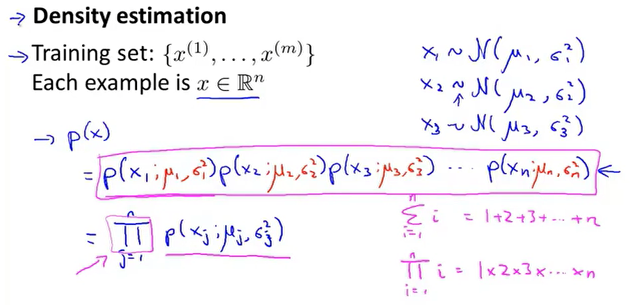 → Density estimation
→ Training set: {x^(1), . . . , x^(m)}
Each example is x ∈ ℝ^n
x₁ ~ N(μ₁, σ₁²)
x₂ ~ N(μ₂, σ₂²)
↑
x₃ ~ N(μ₃, σ₃²)
→ p(x)
= p(x₁; μ₁, σ₁²) p(x₂; μ₂, σ₂²) p(x₃; μ₃, σ₃²) ··· p(xₙ; μₙ, σₙ²) ←
= ∏_{j=1}^{n} p(xⱼ; μⱼ, σⱼ²)
∑_{i=1}^{n} i = 1+2+3+...+n
∏_{i=1}^{n} i = 1×2×3×...×n